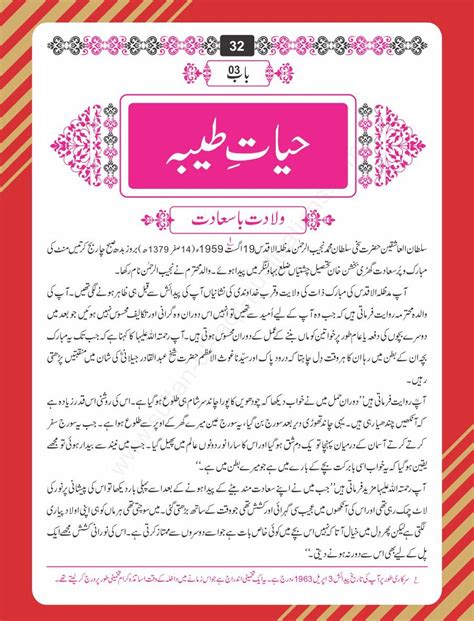 32
باب 03
حیاتِ طیبہ
ولادت باسعادت
سلطان العاشقین حضرت سخی سلطان محمد نجیب الرحمٰن مدظلہ الاقدس 19 اگست 1959ء (14 صفر 1379ھ) بروز بدھ صبح چار بج کر تیس منٹ کی
مبارک و پُر سعادت گھڑی بخشن خان تحصیل چشتیاں ضلع بہاولنگر میں پیدا ہوئے۔ والد محترم نے نجیب الرحمٰن نام رکھا۔
آپ مدظلہ الاقدس کی مبارک ذات کی ولایت و قرب خداوندی کی نشانیاں آپ کی پیدائش سے قبل ہی ظاہر ہونے لگی تھیں۔ آپ کی
والدہ محترمہ فرماتی ہیں کہ جب وہ آپ کے لیے اُمید سے تھیں تو انہیں اس دوران وہ گرانی اور تکالیف محسوس نہیں ہوئیں جو بعد میں
دوسرے بچوں کی دفعہ یا عام طور پر خواتین کو ماں بننے کے عمل کے دوران محسوس ہوتی ہیں۔ والدہ محترمہ رحمۃ اللہ علیہا کا کہنا ہے کہ جب تک یہ
بچہ ان کے بطن میں رہا ان کا ہر وقت دِل چاہتا کہ درود پاک اور سیّدنا غوث الاعظم حضرت شیخ عبدالقادر جیلانیؓ کی شان میں منقبتیں پڑھتی
رہیں۔
آپ روایت فرماتی ہیں ”دورانِ حمل میں نے خواب دیکھا کہ چودھویں کا پورا چاند سرِشام ہی طلوع ہو گیا ہے۔ اس کی روشنی اس قدر زیادہ ہے
کہ آنکھیں چندھیا رہی ہیں۔ یہی چاند تھوڑی دیر بعد سورج بن گیا، سورج بھی ایسا کہ اس سے پہلے اتنا روشن سورج نہیں دیکھا۔ جب یہ سورج سفر
کرتے کرتے آسمان کے درمیان پہنچا تو یک دم شق ہو گیا اور اس کا سارا نور دونوں عالم میں پھیل گیا۔ جب میں نیند سے بیدار ہوئی تو مجھے
یقین ہو گیا کہ یہ خواب اسی بابرکت بچے کے بارے میں ہے جو میرے بطن میں ہے۔“
آپ رحمۃ اللہ علیہا مزید فرماتی ہیں ”جب میں نے اپنے سعادت مند بیٹے کے پیدا ہونے کے بعد اسے پہلی بار دیکھا تو اس کی پیشانی پر نور کی
لاٹ چمک رہی تھی اور اس کی آنکھوں میں عجیب سی گیرائی اور کشش تھی جو وقت کے ساتھ ساتھ بڑھتی گئی۔ میں سوچتی تھی ہر ماں کو ہی اپنی اولاد پیاری
لگتی ہے لیکن پھر دِل میں خیال آتا کہ نہیں اس بچے میں کوئی خاص بات ہے جو اسے دوسروں سے ممتاز کرتی ہے۔ اس کی نورانی کشش مجھے ایک
پل کے لیے بھی اس سے دور نہ ہونے دیتی۔“
سرکاری طور پر آپ کی تاریخ پیدائش 3 اپریل 1963ء درج ہے۔ یہ ایک تخمینی اندراج ہے جو اس زمانے میں داخلہ کے وقت اساتذہ کرام تخمینی طور پر درج کر لیتے تھے۔